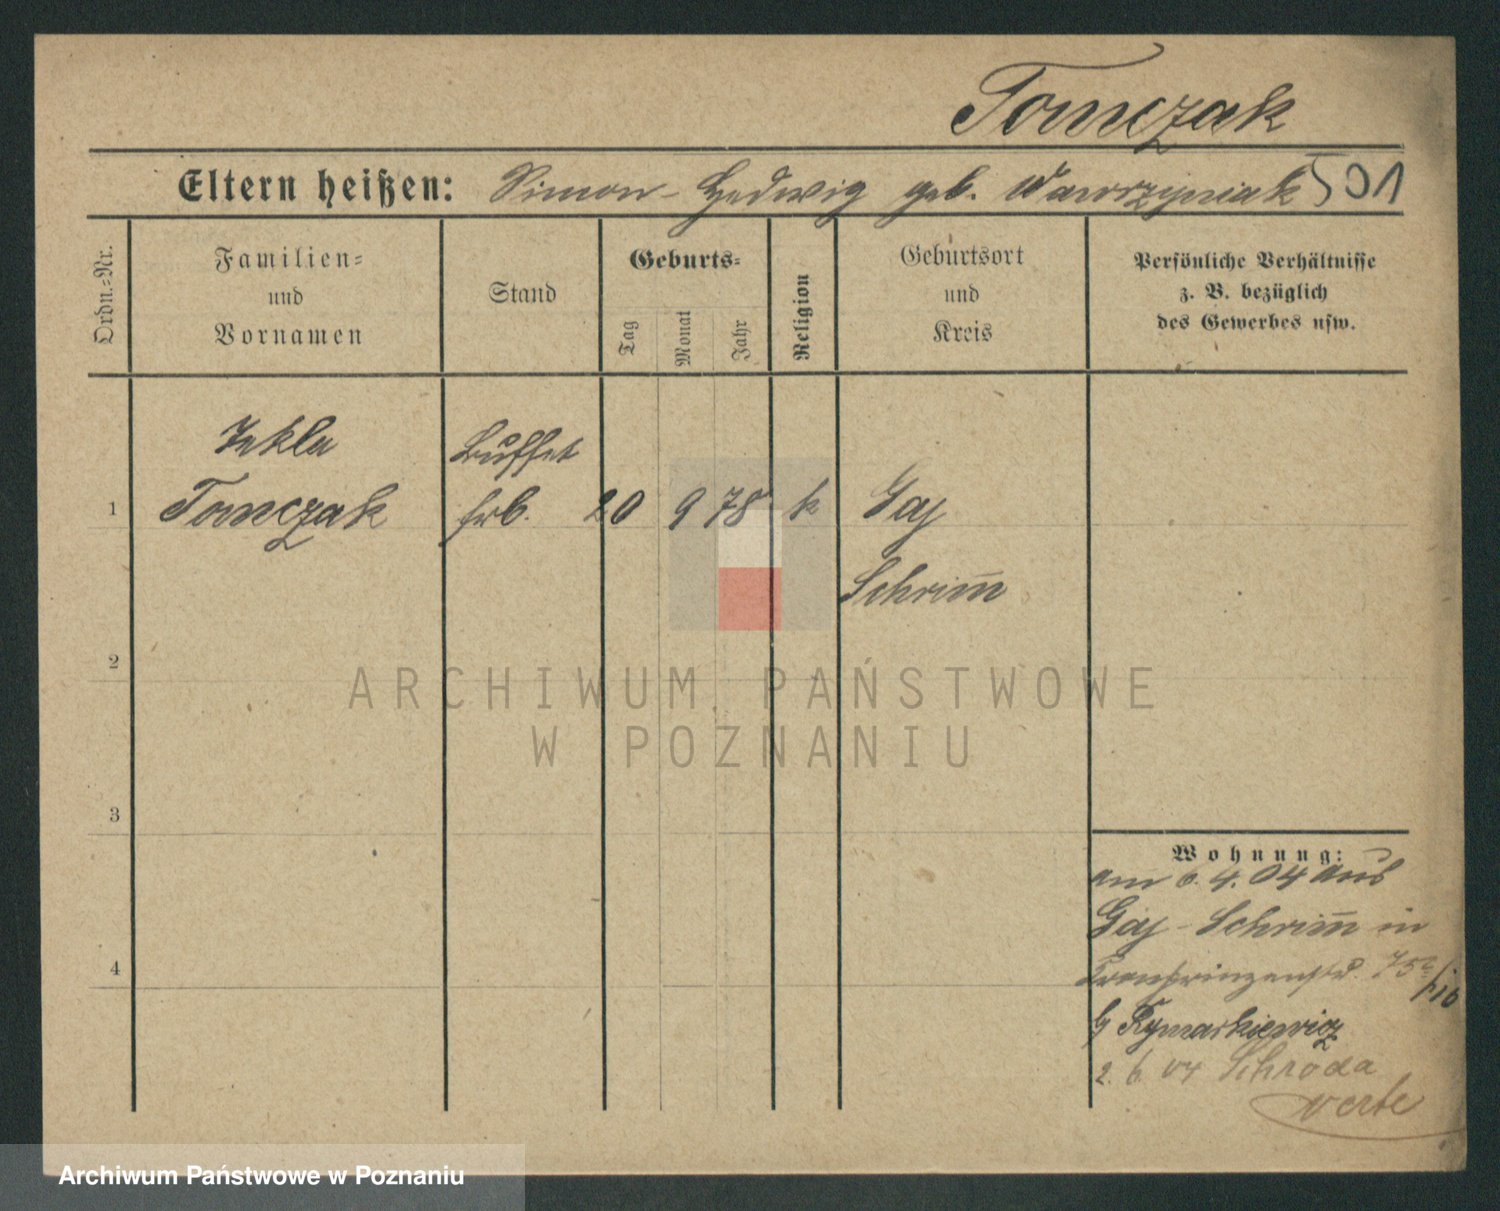 Tomczak
Eltern heißen: Simon - Hedwig geb. Wawrzyniak 501
Ordn.-Nr.
Familien-
und
Vornamen
Stand
Geburts-
Tag
Monat
Jahr
Religion
Geburtsort
und
Kreis
Persönliche Verhältnisse
z. B. bezüglich
des Gewerbes usw.
Tekla Buffet
1 Tomczak frl. 20 9 78 k Gaj
Schrim̄
2
ARCHIWUM PAŃSTWOWE
W POZNANIU
3
Wohnung:
am 6. 4. 04 aus
Gaj - Schrim̄ in
Kronprinzenstr. 75
b Rymarkiewicz
2. 6. 04 Schroda
4
Archiwum Państwowe w Poznaniu